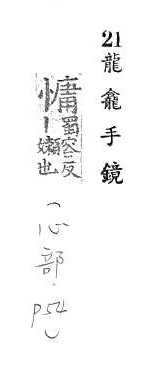 21龍龕手鏡
慵蜀容反
丨嬾也
(心部.p54)